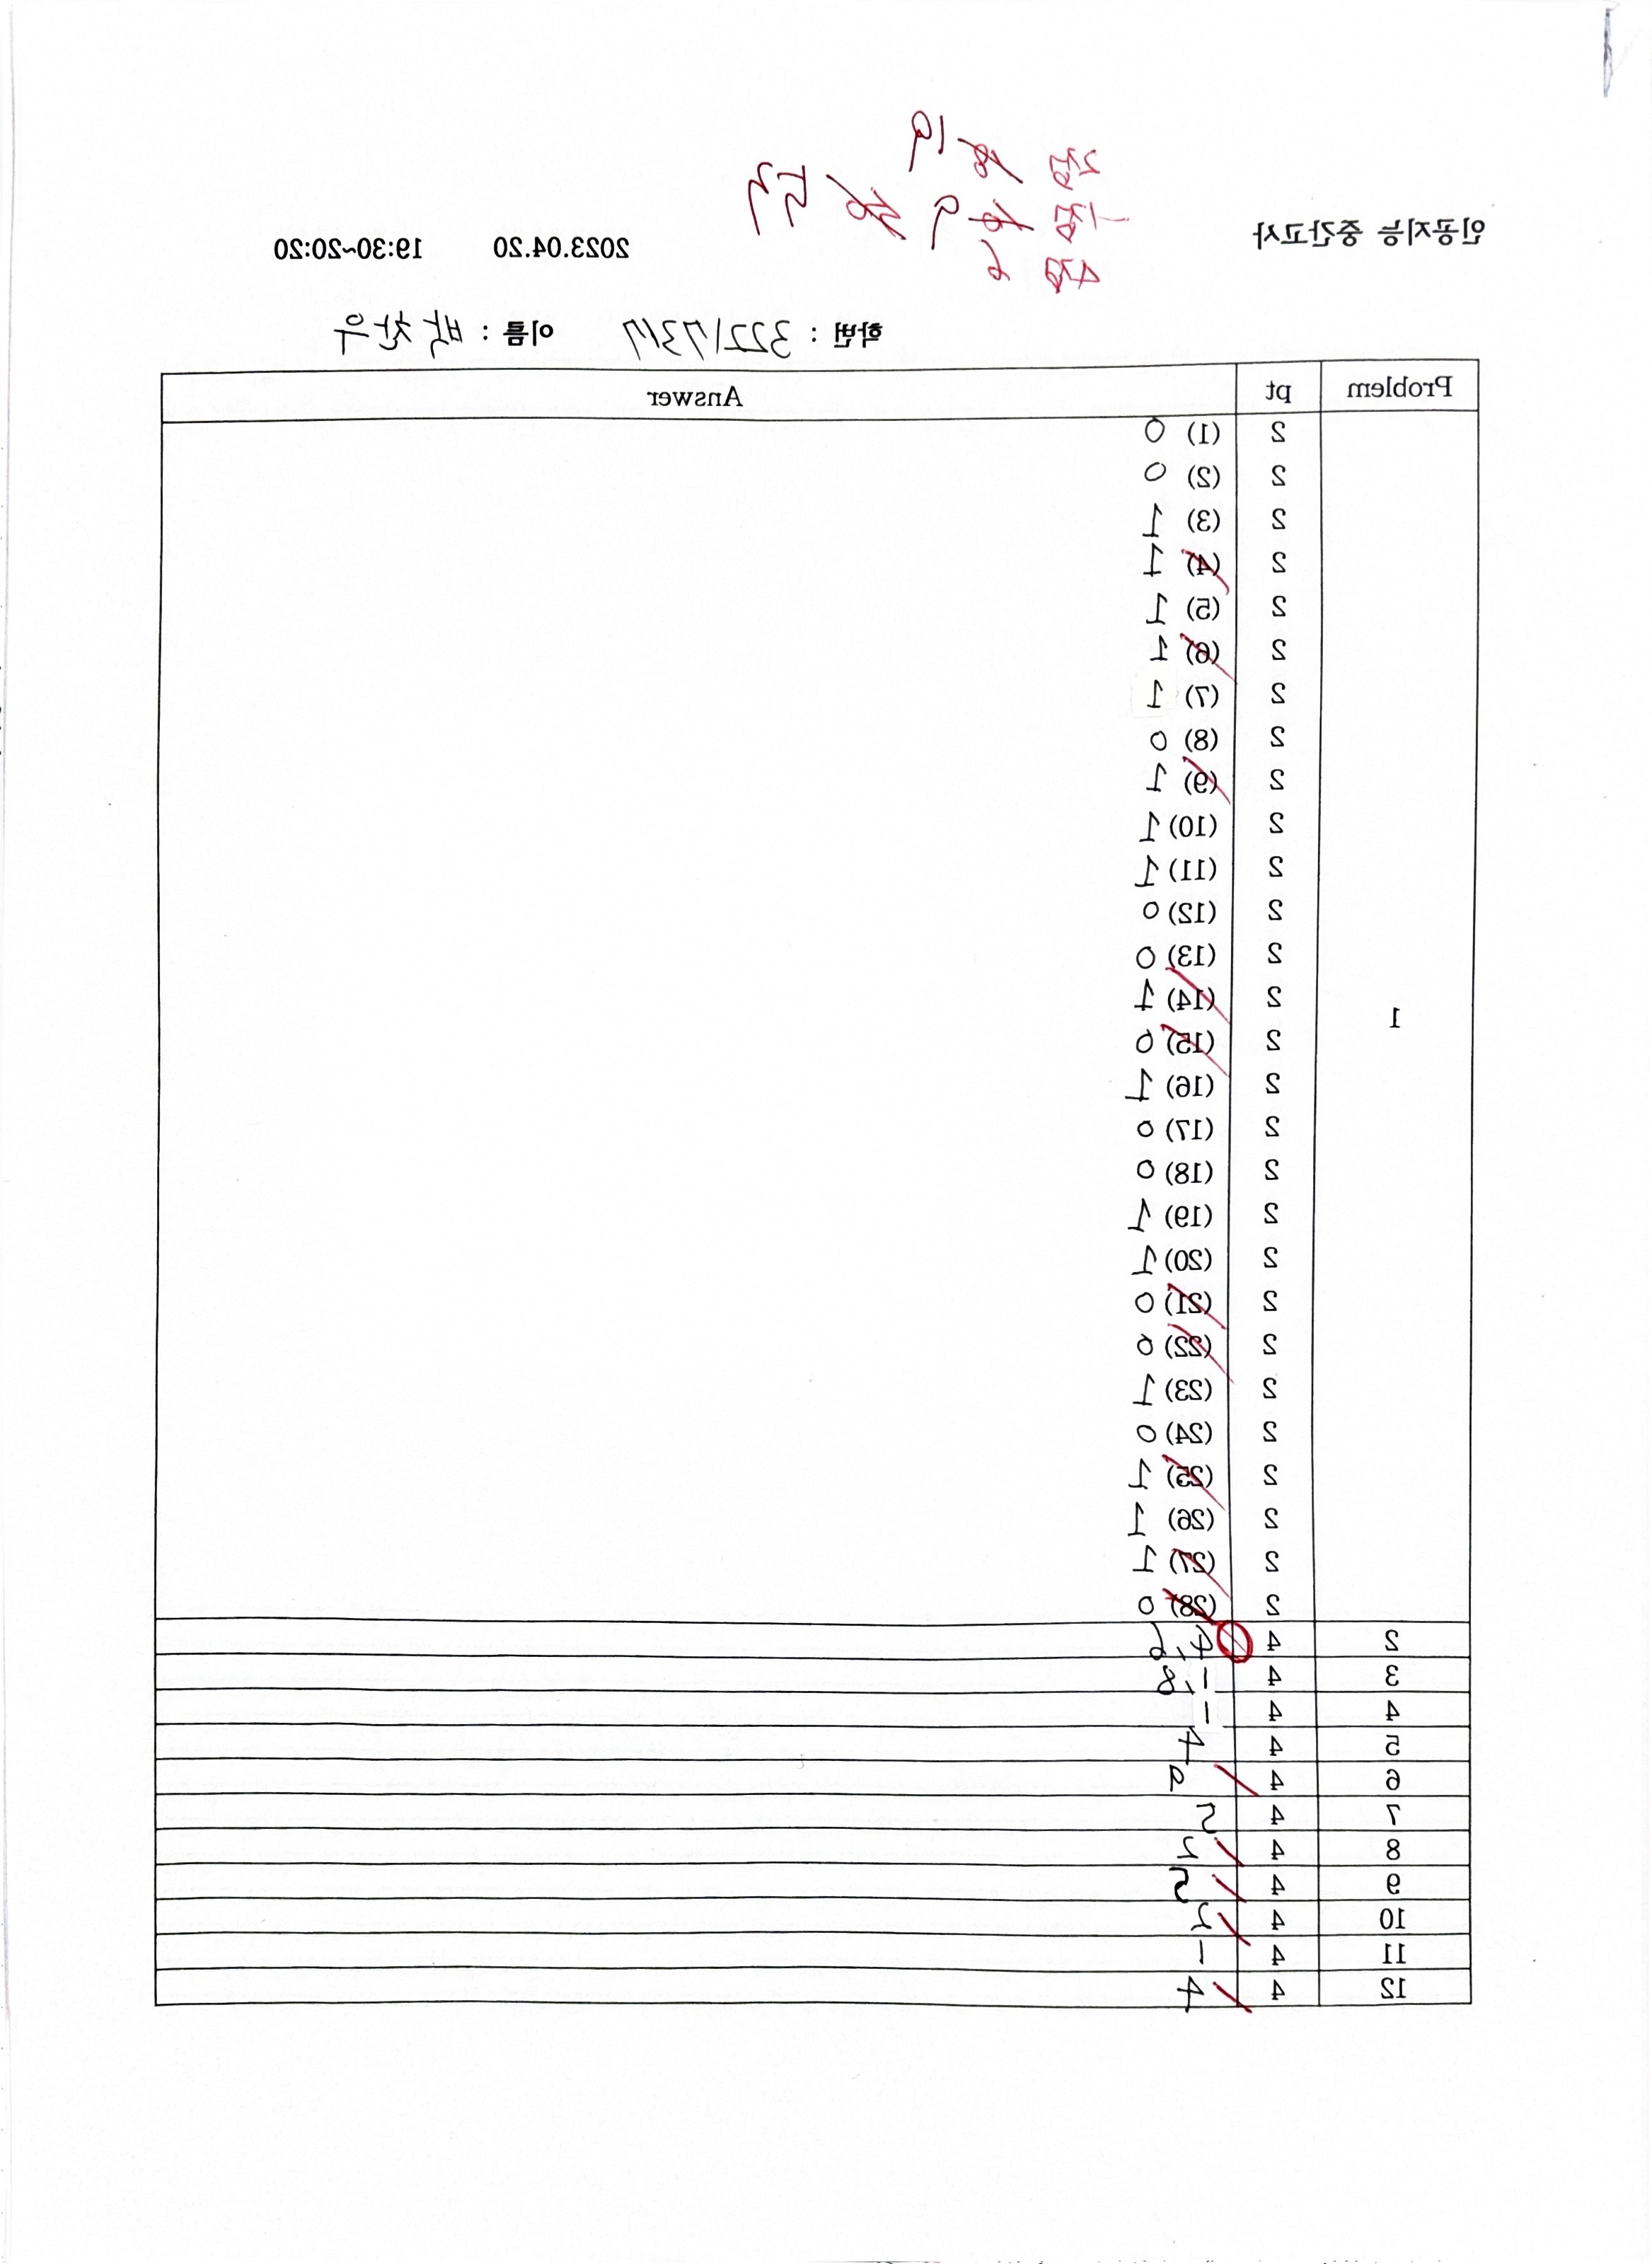 2점 19
4점 6
인공지능 중간고사 2023.04.20 19:30~20:20
학번 : 32217317 이름 : 박찬우
Problem pt Answer
1
2 (1) 0
2 (2) 0
2 (3) 1
2 (4) 1
2 (5) 1
2 (6) 1
2 (7) 1
2 (8) 0
2 (9) 1
2 (10) 1
2 (11) 1
2 (12) 0
2 (13) 0
2 (14) 1
2 (15) 0
2 (16) 1
2 (17) 0
2 (18) 0
2 (19) 1
2 (20) 1
2 (21) 0
2 (22) 0
2 (23) 1
2 (24) 0
2 (25) 1
2 (26) 1
2 (27) 1
2 (28) 0
2 4 4, 6
3 4 1, 8
4 4 1
5 4 4
6 4
7 4 5
8 4 2
9 4 5
10 4 2
11 4 1
12 4 4